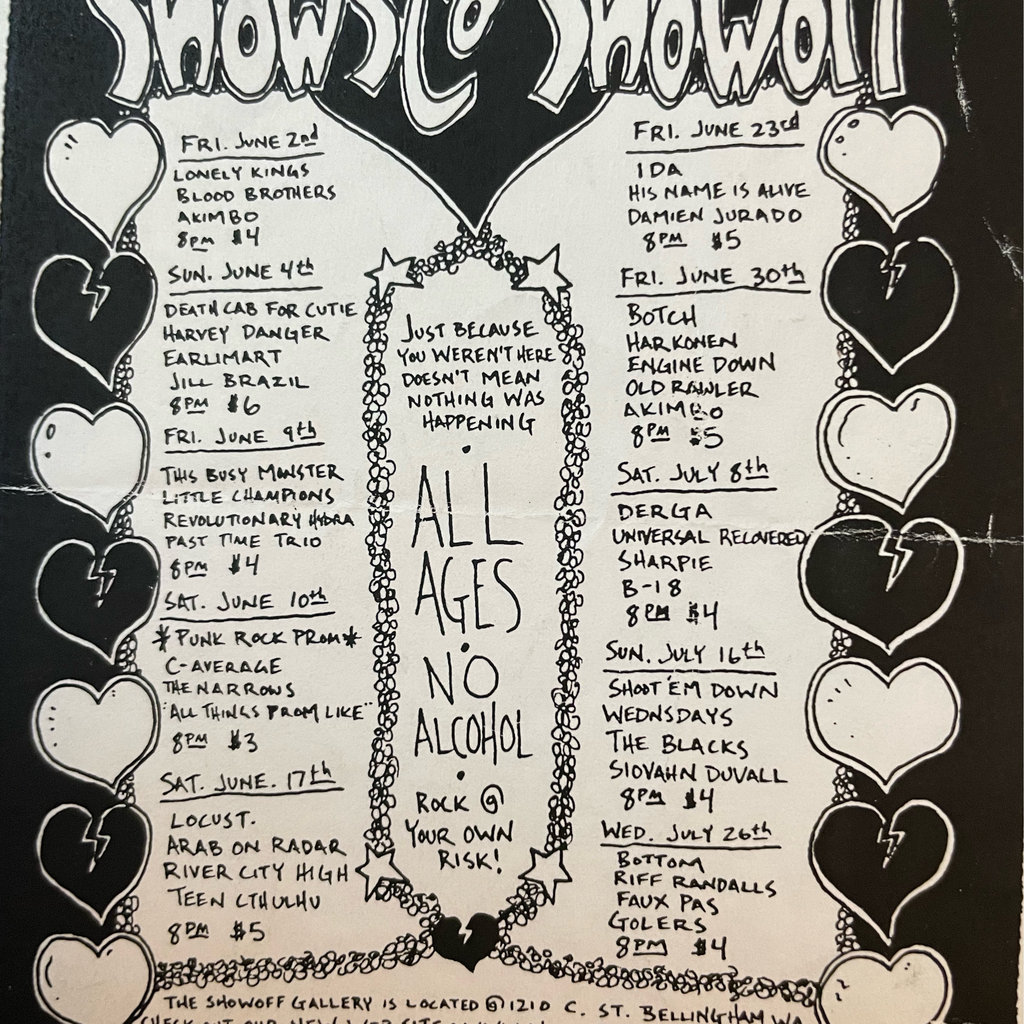 SHOWS @ SHOWOFF
FRI. JUNE 2nd
LONELY KINGS
BLOOD BROTHERS
AKIMBO
8PM $4
SUN. JUNE 4th
DEATH CAB FOR CUTIE
HARVEY DANGER
EARLIMART
JILL BRAZIL
8PM $6
FRI. JUNE 9th
THIS BUSY MONSTER
LITTLE CHAMPIONS
REVOLUTIONARY HYDRA
PAST TIME TRIO
8PM $4
SAT. JUNE 10th
*PUNK ROCK PROM*
C-AVERAGE
THE NARROWS
"ALL THINGS PROM LIKE"
8PM $3
SAT. JUNE. 17th
LOCUST.
ARAB ON RADAR
RIVER CITY HIGH
TEEN CTHULHU
8PM $5
JUST BECAUSE
YOU WEREN'T HERE
DOESN'T MEAN
NOTHING WAS
HAPPENING
ALL
AGES
NO
ALCOHOL
ROCK @
YOUR OWN
RISK!
FRI. JUNE 23rd
IDA
HIS NAME IS ALIVE
DAMIEN JURADO
8PM $5
FRI. JUNE 30th
BOTCH
HARKONEN
ENGINE DOWN
OLD RAWLER
AKIMBO
8PM $5
SAT. JULY 8th
DERGA
UNIVERSAL RECOVERED
SHARPIE
B-18
8PM $4
SUN. JULY 16th
SHOOT 'EM DOWN
WEDNSDAYS
THE BLACKS
SIOVAHN DUVALL
8PM $4
WED. JULY 26th
BOTTOM
RIFF RANDALLS
FAUX PAS
GOLERS
8PM $4
THE SHOWOFF GALLERY IS LOCATED @ 1210 C. ST. BELLINGHAM WA
CHECK OUT OUR